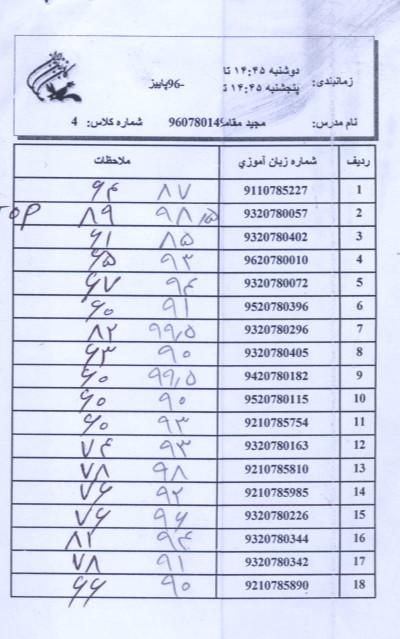 زمانبندی: دوشنبه ۱۴:۴۵ تا
پنجشنبه ۱۴:۴۵ ت
-96پاییز
نام مدرس: مجید مقام 96078014 شماره کلاس: 4
ردیف شماره زبان آموزي ملاحظات
1 9110785227 ۸۷ ۶۴
2 9320780057 ۹۸٫۵ ۸۹ TOP
3 9320780402 ۸۵ ۶۱
4 9620780010 ۹۳ ۶۵
5 9320780072 ۹۴ ۶۷
6 9520780396 ۹۱ ۶۰
7 9320780296 ۹۹٫۵ ۸۲
8 9320780405 ۹۰ ۶۳
9 9420780182 ۹۹٫۵ ۶۰
10 9520780115 ۹۰ ۶۰
11 9210785754 ۹۳ ۶۰
12 9320780163 ۹۳ ۷۴
13 9210785810 ۹۸ ۷۸
14 9210785985 ۹۲ ۷۶
15 9320780226 ۹۶ ۷۶
16 9320780344 ۹۴ ۸۲
17 9320780342 ۹۱ ۷۸
18 9210785890 ۹۰ ۶۶